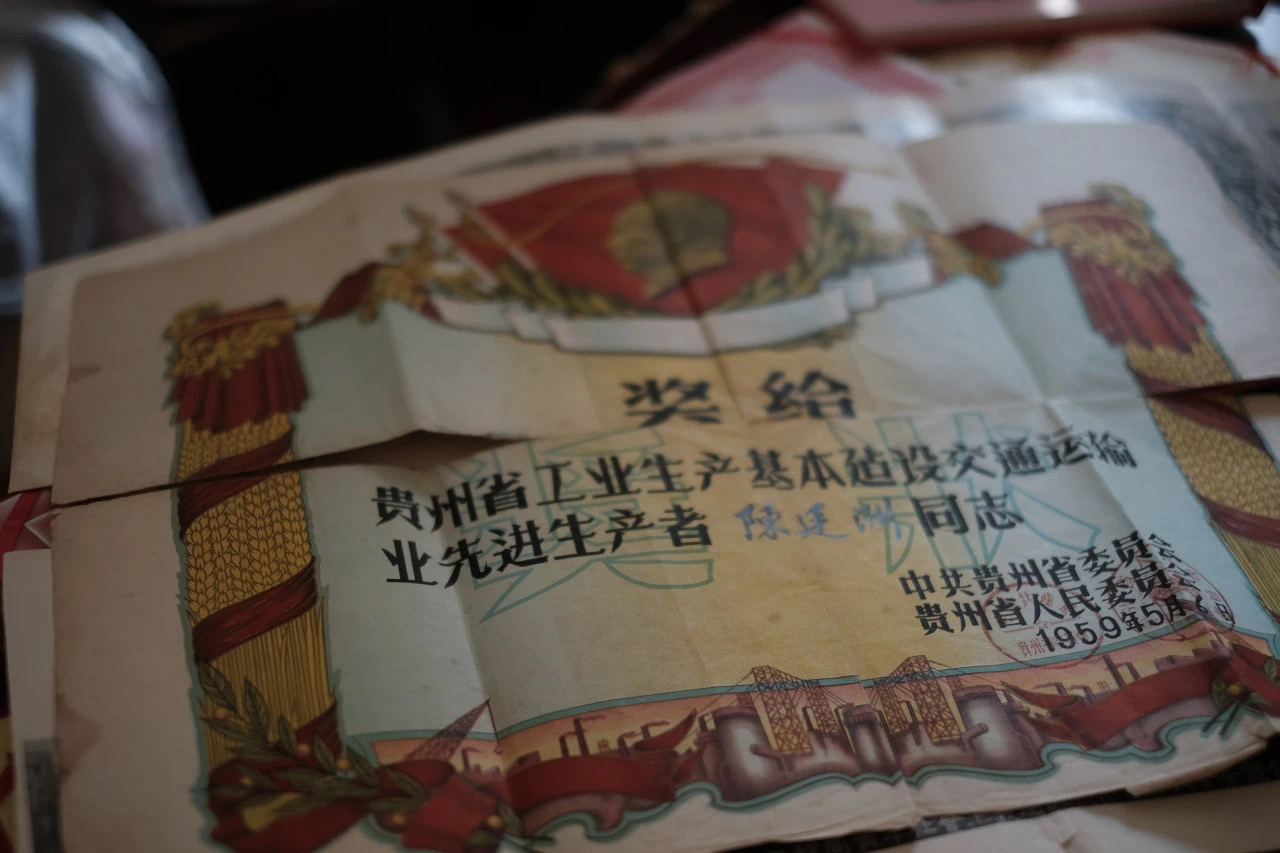 奖给
奖状
贵州省工业生产基本建设交通运输
业先进生产者 陳廷洲 同志
中共贵州省委员会
贵州省人民委员会
1959年5月6日